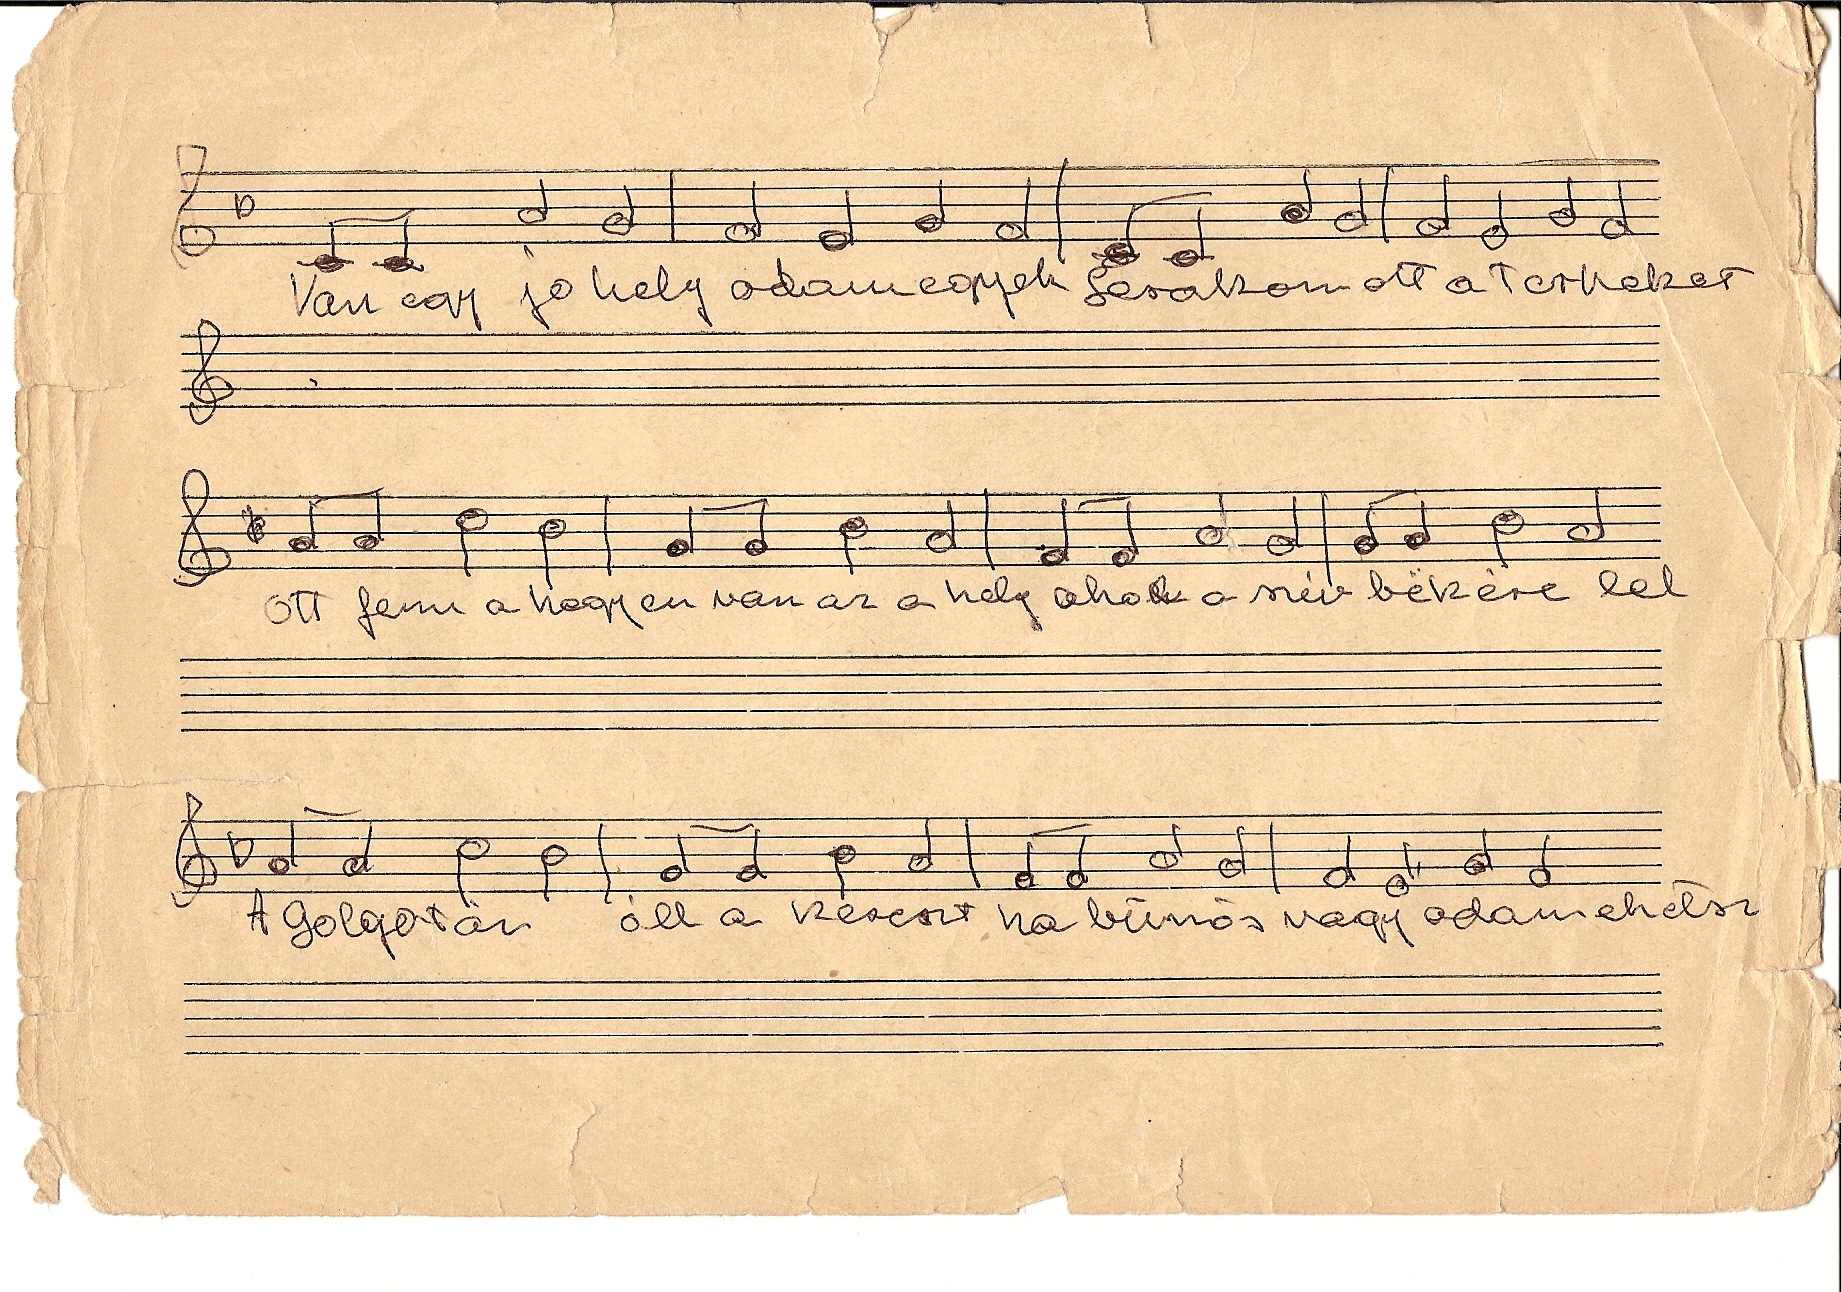 Van egy jó hely odamegyek Lerakom ott a terheket
Ott fenn a hegyen van az a hely ahol a szív békére lel
A Golgotán áll a kereszt ha bűnös vagy odamehetsz